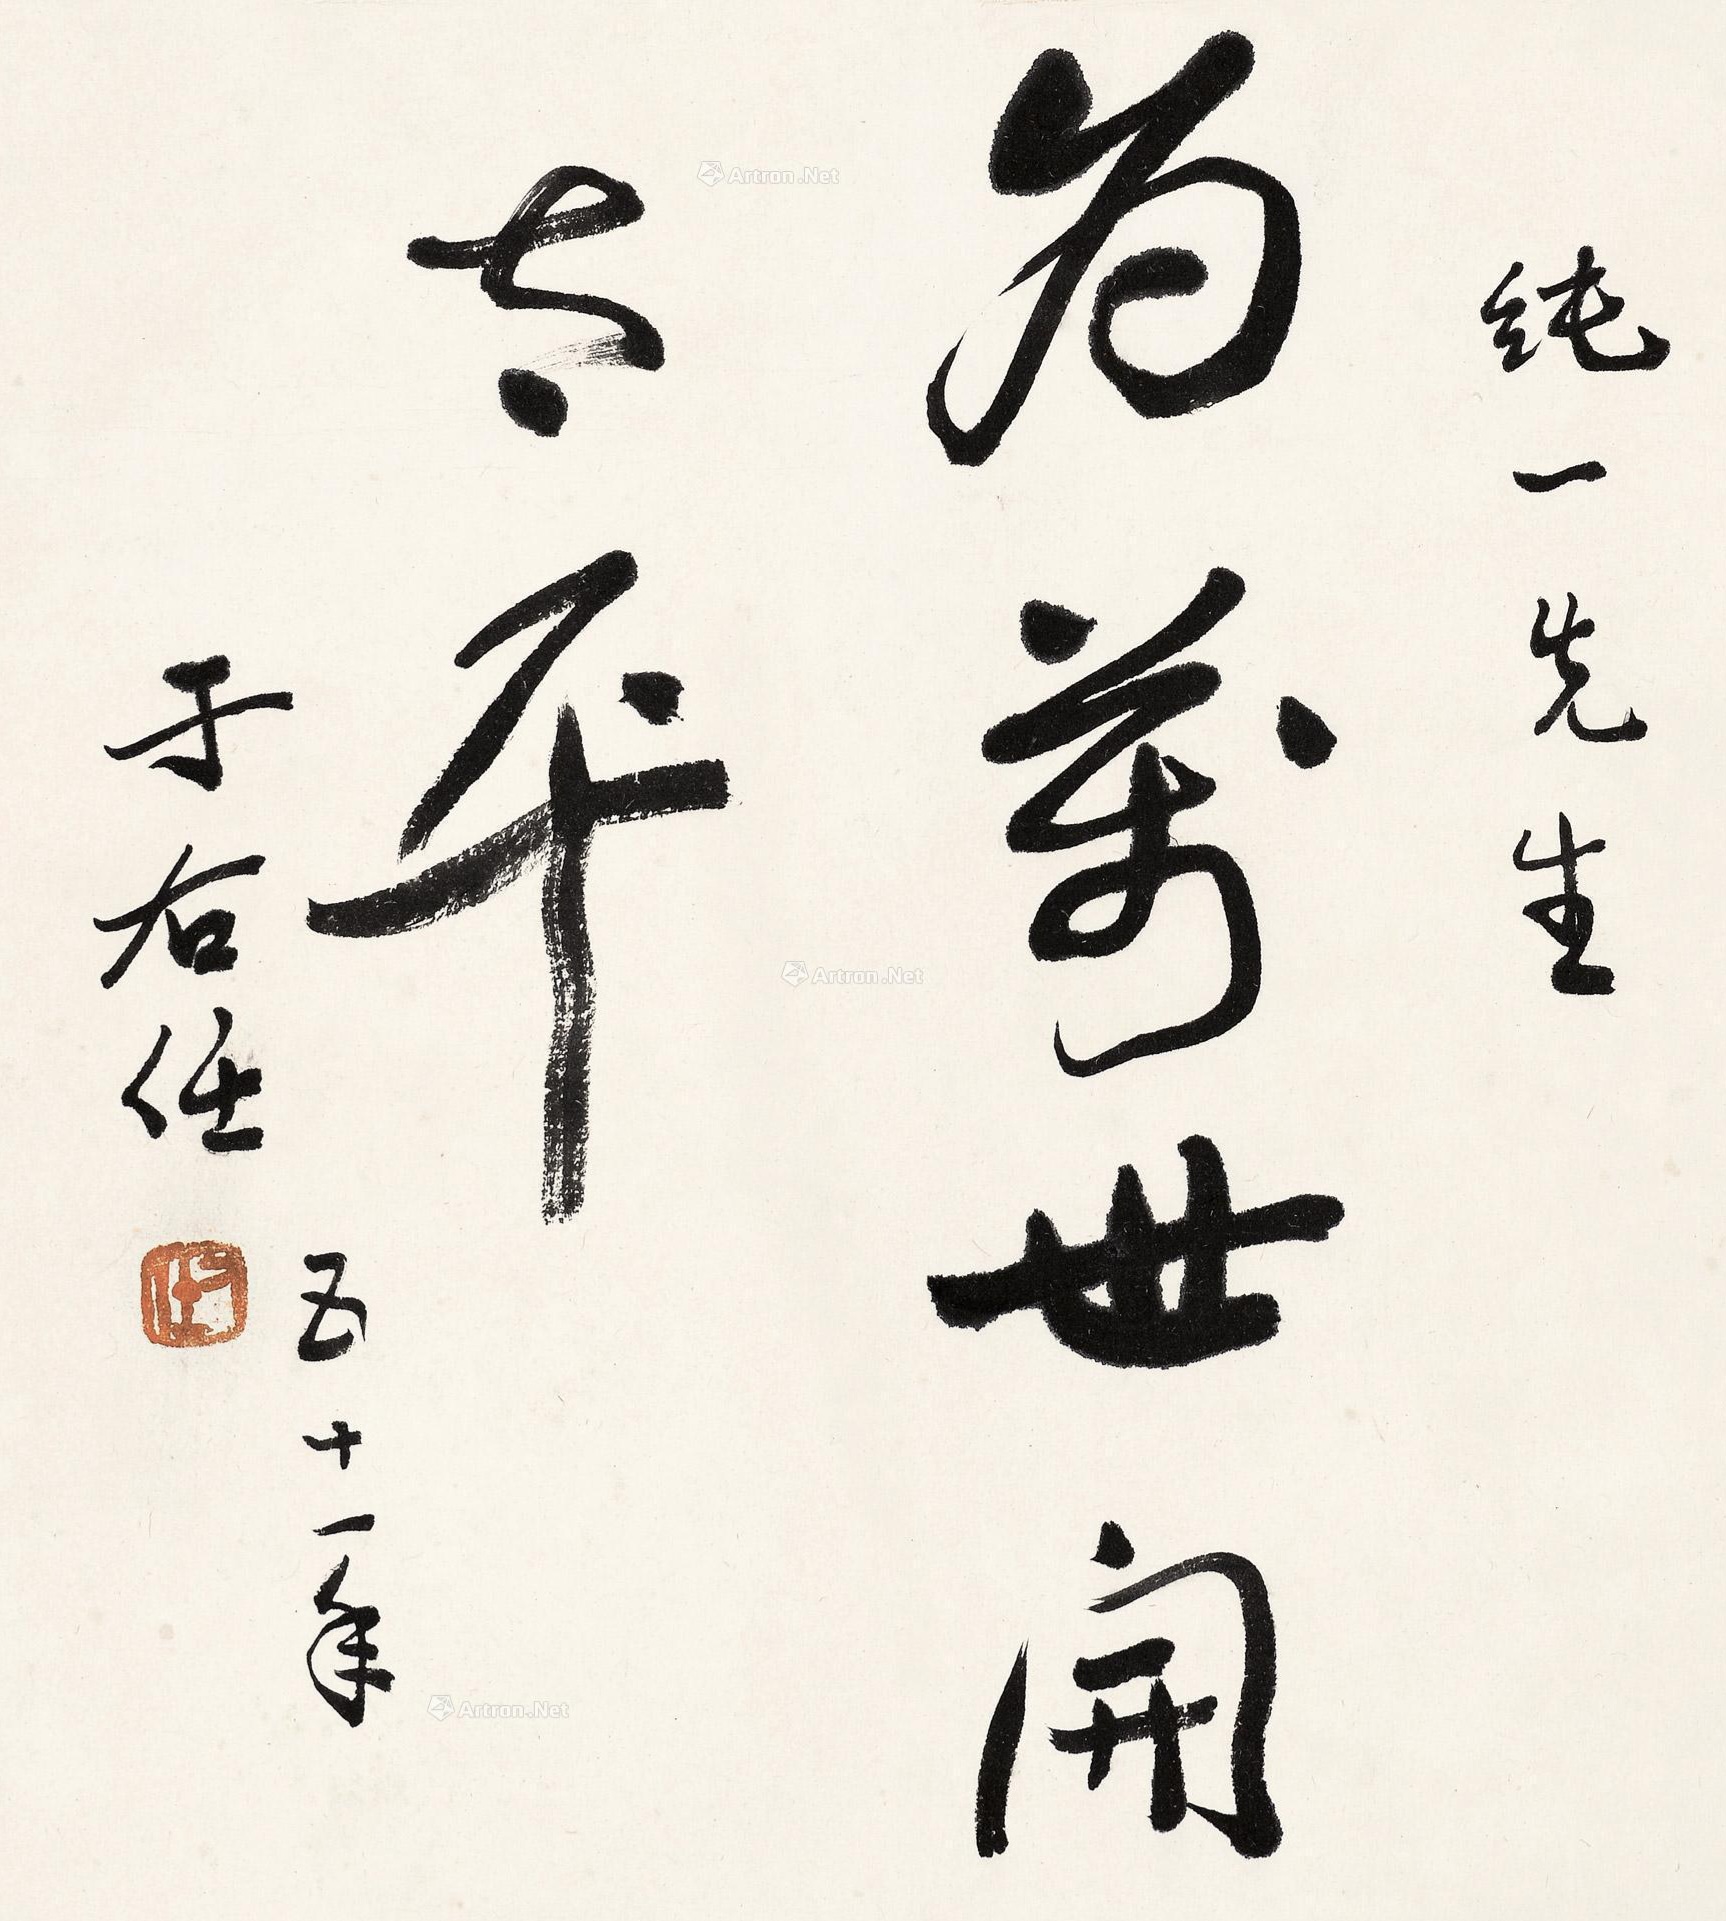 純一先生
為萬世開
太平
五十一年
于右任
右任
Artron.Net
Artron.Net
Artron.Net